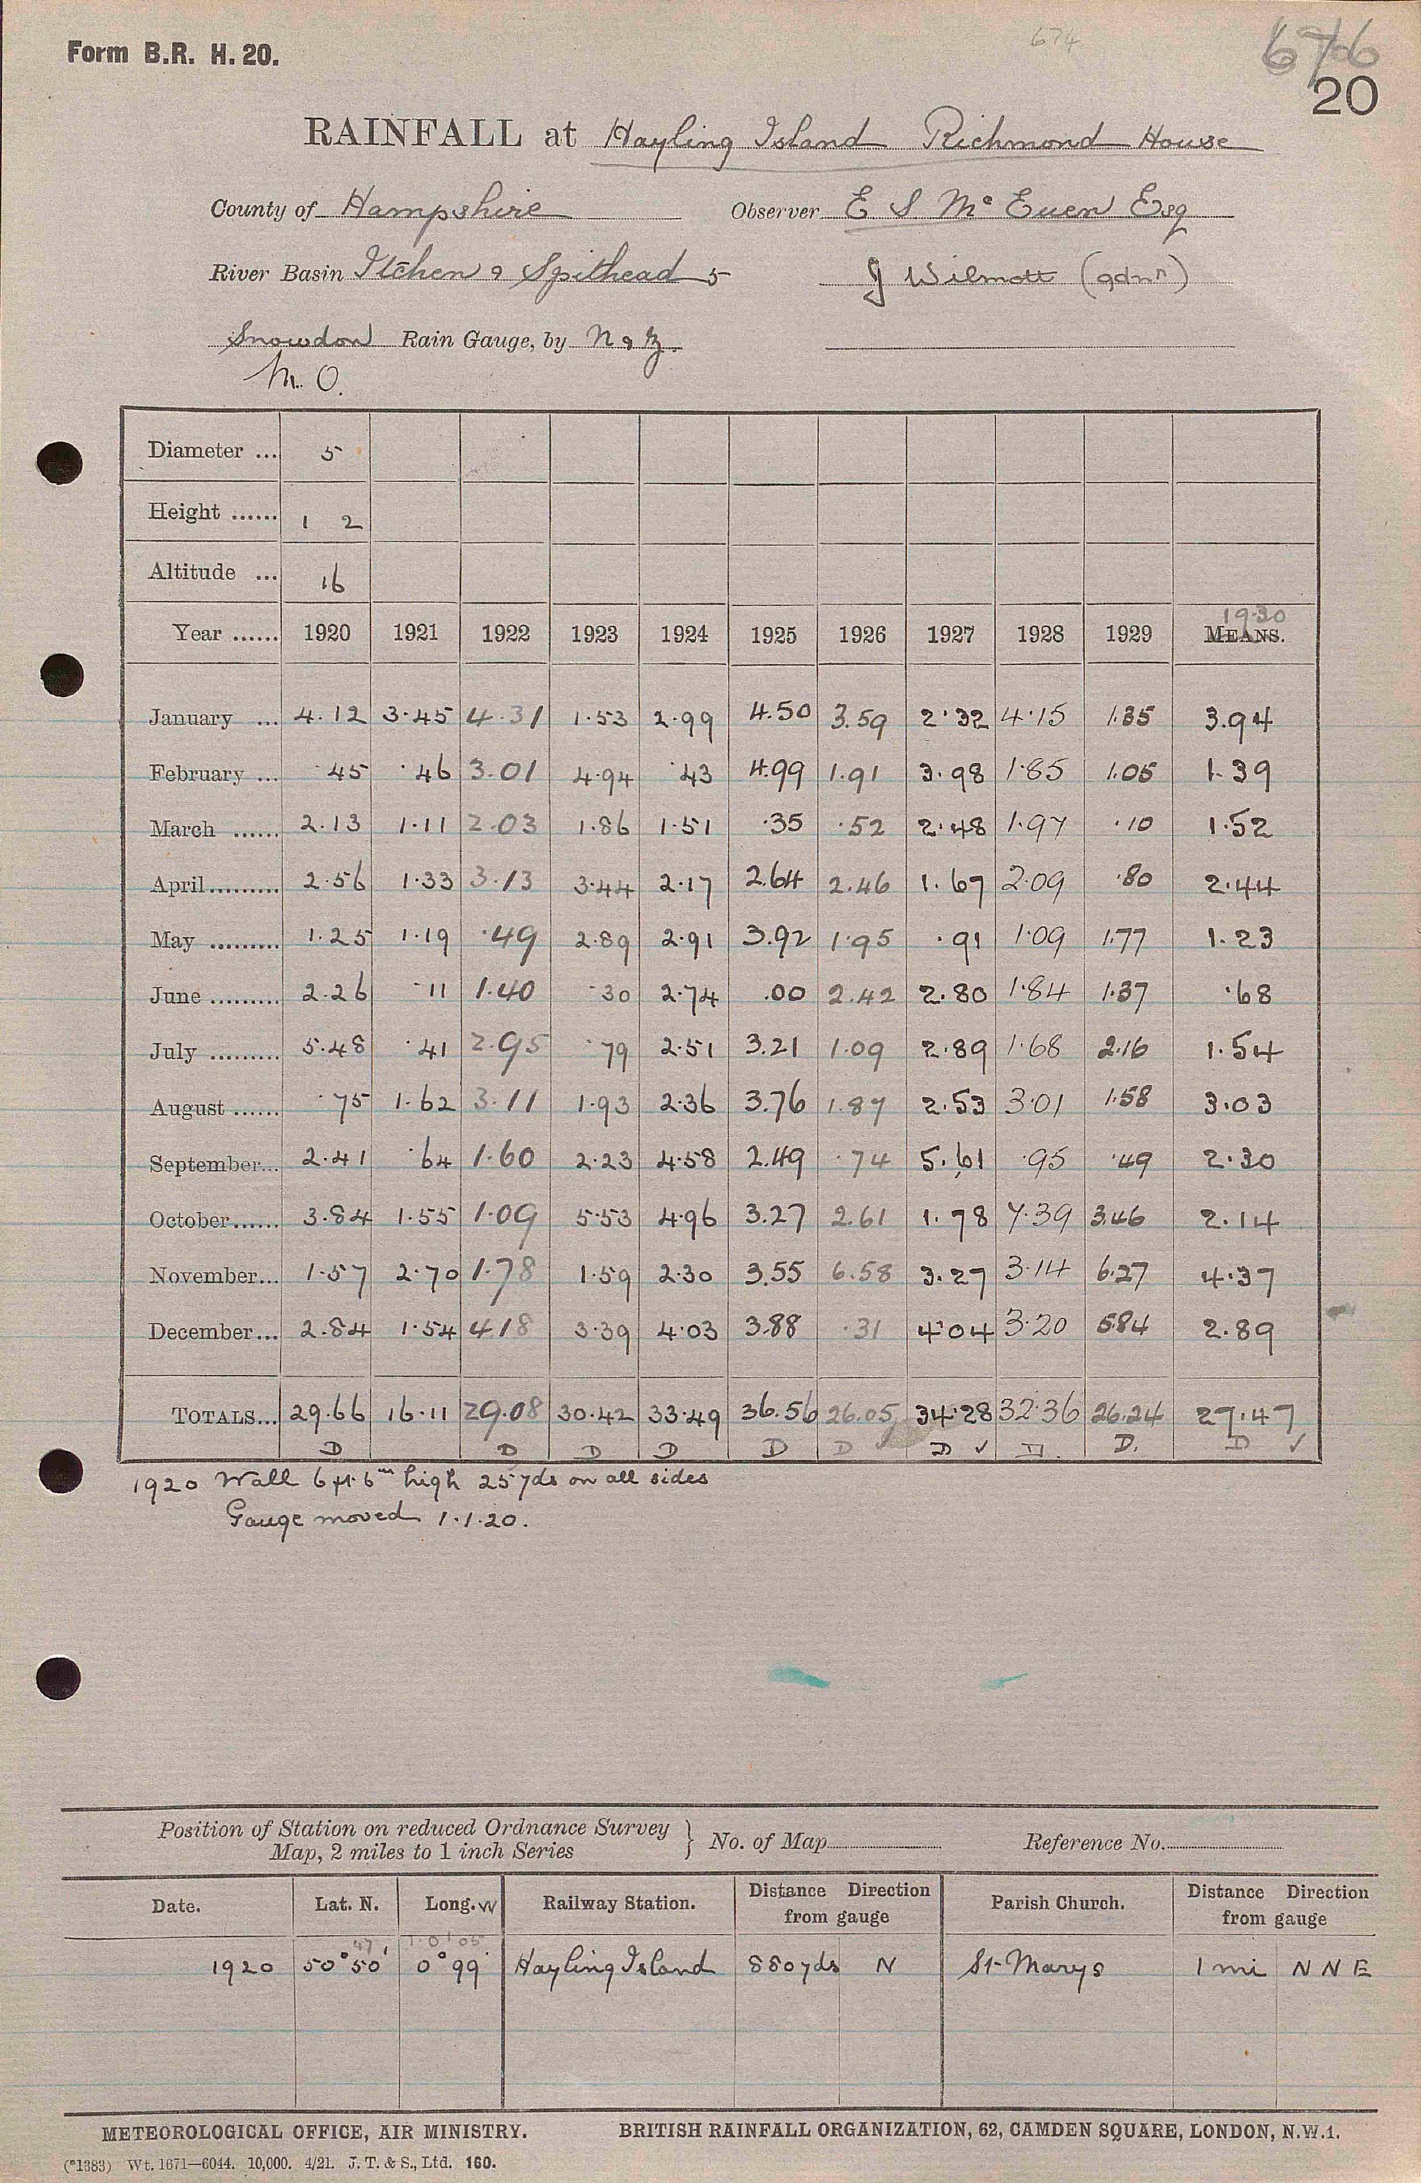 Form B.R. H. 20.
674
6706
20
RAINFALL at Hayling Island Richmond House
County of Hampshire Observer E S Mc Euen Esq
River Basin Itchen & Spithead 5 J Wilmott (gdnr)
Snowdon Rain Gauge, by N & Z.
M. O.
Diameter ... 5
Height ...... 1 2
Altitude ... 16
1930
Year ...... 1920 1921 1922 1923 1924 1925 1926 1927 1928 1929 MEANS.
January ... 4.12 3.45 4.31 1.53 2.99 4.50 3.59 2.32 4.15 1.35 3.94
February ... .45 .46 3.01 4.94 .43 4.99 1.91 3.98 1.85 1.05 1.39
March ...... 2.13 1.11 2.03 1.86 1.51 .35 .52 2.48 1.97 .10 1.52
April......... 2.56 1.33 3.13 3.44 2.17 2.64 2.46 1.67 2.09 .80 2.44
May ......... 1.25 1.19 .49 2.89 2.91 3.92 1.95 .91 1.09 1.77 1.23
June ......... 2.26 .11 1.40 .30 2.74 .00 2.42 2.80 1.84 1.37 .68
July ......... 5.48 .41 2.95 .79 2.51 3.21 1.09 2.89 1.68 2.16 1.54
August ...... .75 1.62 3.11 1.93 2.36 3.76 1.87 2.53 3.01 1.58 3.03
September... 2.41 .64 1.60 2.23 4.58 2.49 .74 5.61 .95 .49 2.30
October...... 3.84 1.55 1.09 5.53 4.96 3.27 2.61 1.78 7.39 3.46 2.14
November... 1.57 2.70 1.78 1.59 2.30 3.55 6.58 3.27 3.14 6.27 4.37
December... 2.84 1.54 4.18 3.39 4.03 3.88 .31 4.04 3.20 5.84 2.89
TOTALS... 29.66 16.11 29.08 30.42 33.49 36.56 26.05 34.28 32.36 26.24 27.47
D D D D D D D ✓ D. D. D ✓
1920 Wall 6 ft. 6 in high 25 yds on all sides
Gauge moved 1.1.20.
Position of Station on reduced Ordnance Survey Map, 2 miles to 1 inch Series } No. of Map Reference No.
Date. Lat. N. Long. W Railway Station. Distance Direction from gauge Parish Church. Distance Direction from gauge
47'
1920 50° 50' 0° 99' Hayling Island 880 yds N St Marys 1 mi N N E
METEOROLOGICAL OFFICE, AIR MINISTRY. BRITISH RAINFALL ORGANIZATION, 62, CAMDEN SQUARE, LONDON, N.W.1.
(*1383) Wt. 1671—6044. 10,000. 4/21. J. T. & S., Ltd. 160.